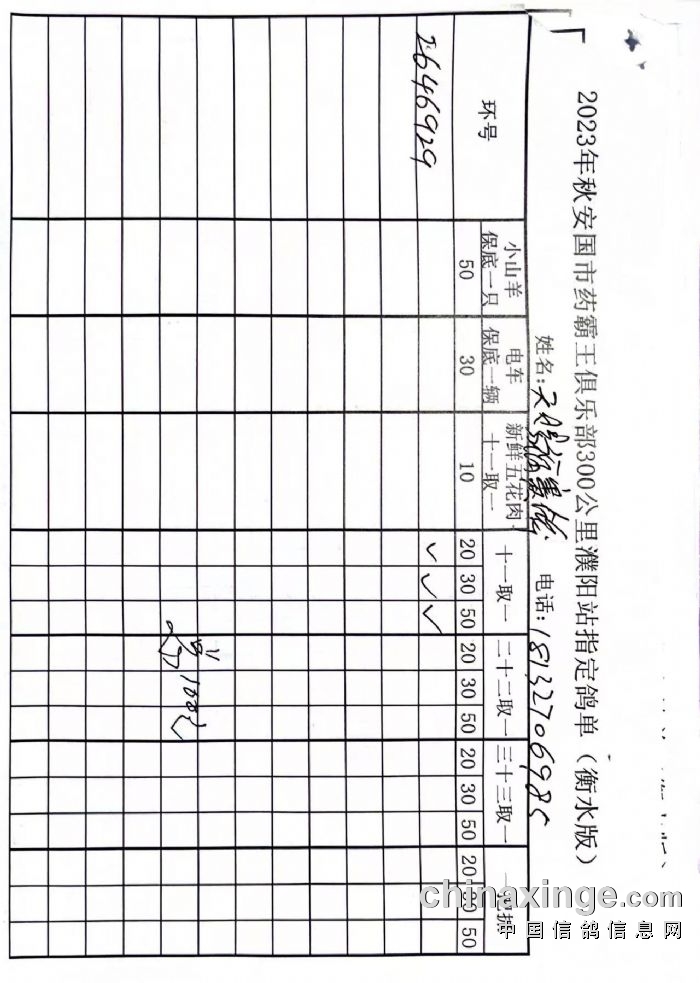 2023年秋安国市药霸王俱乐部300公里濮阳站指定鸽单（衡水版）
姓名: 电话: 18132706985
环号 小山羊 保底一只 电车 保底一辆 新鲜五花肉 十一取一 十一取一 二十二取一 三十三取一
50 30 10 20 30 50 20 30 50 20 30 50 20 30 50
2646929 ✓ ✓ ✓
100元
chinaxinge.com
中国信鸽信息网